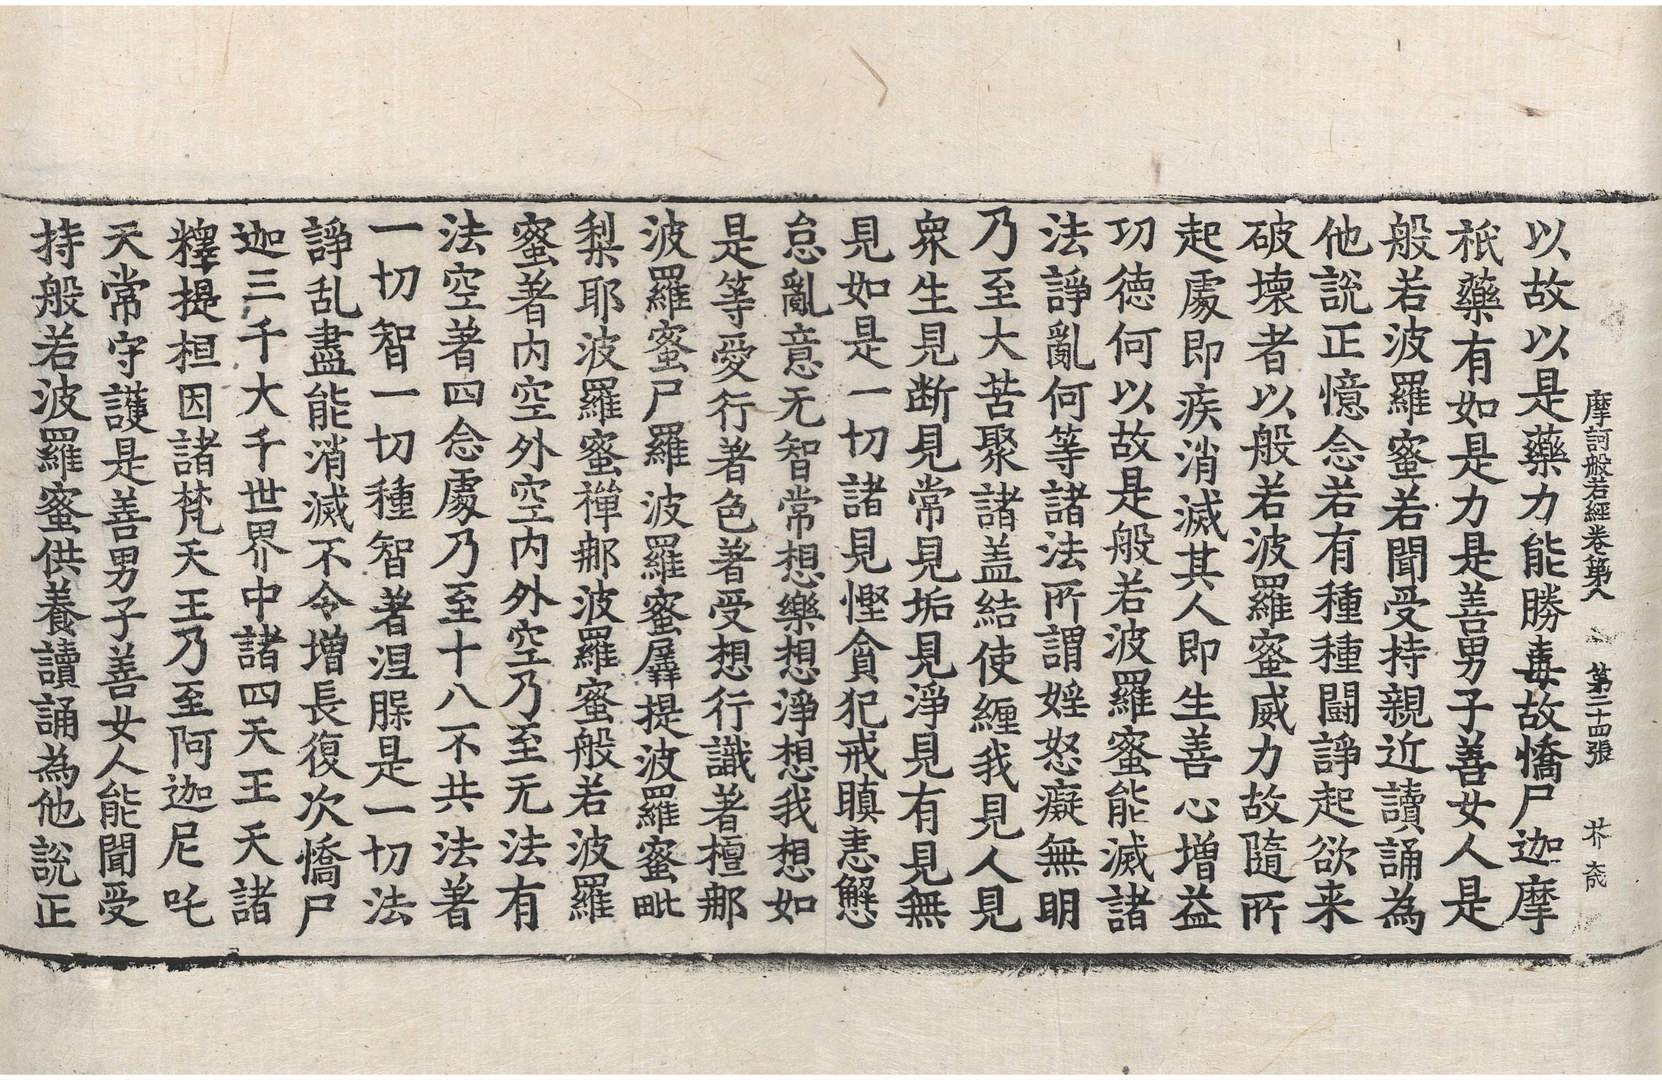 摩訶般若經卷第八　第三十四張　芥
以故以是藥力能勝毒故憍尸迦摩
祇藥有如是力是善男子善女人是
般若波羅蜜若聞受持親近讀誦為
他說正憶念若有種種鬪諍起欲来
破壞者以般若波羅蜜威力故隨所
起處即疾消滅其人即生善心增益
功德何以故是般若波羅蜜能滅諸
法諍亂何等諸法所謂婬怒癡無明
乃至大苦聚諸盖結使纏我見人見
衆生見断見常見垢見淨見有見無
見如是一切諸見慳貪犯戒瞋恚懈
怠亂意无智常想樂想淨想我想如
是等愛行著色著受想行識著檀那
波羅蜜尸羅波羅蜜羼提波羅蜜毗
梨耶波羅蜜禪那波羅蜜般若波羅
蜜著内空外空内外空乃至无法有
法空著四念處乃至十八不共法著
一切智一切種智著涅槃是一切法
諍乱盡能消滅不令增長復次憍尸
迦三千大千世界中諸四天王天諸
釋提桓因諸梵天王乃至阿迦尼吒
天常守護是善男子善女人能聞受
持般若波羅蜜供養讀誦為他說正